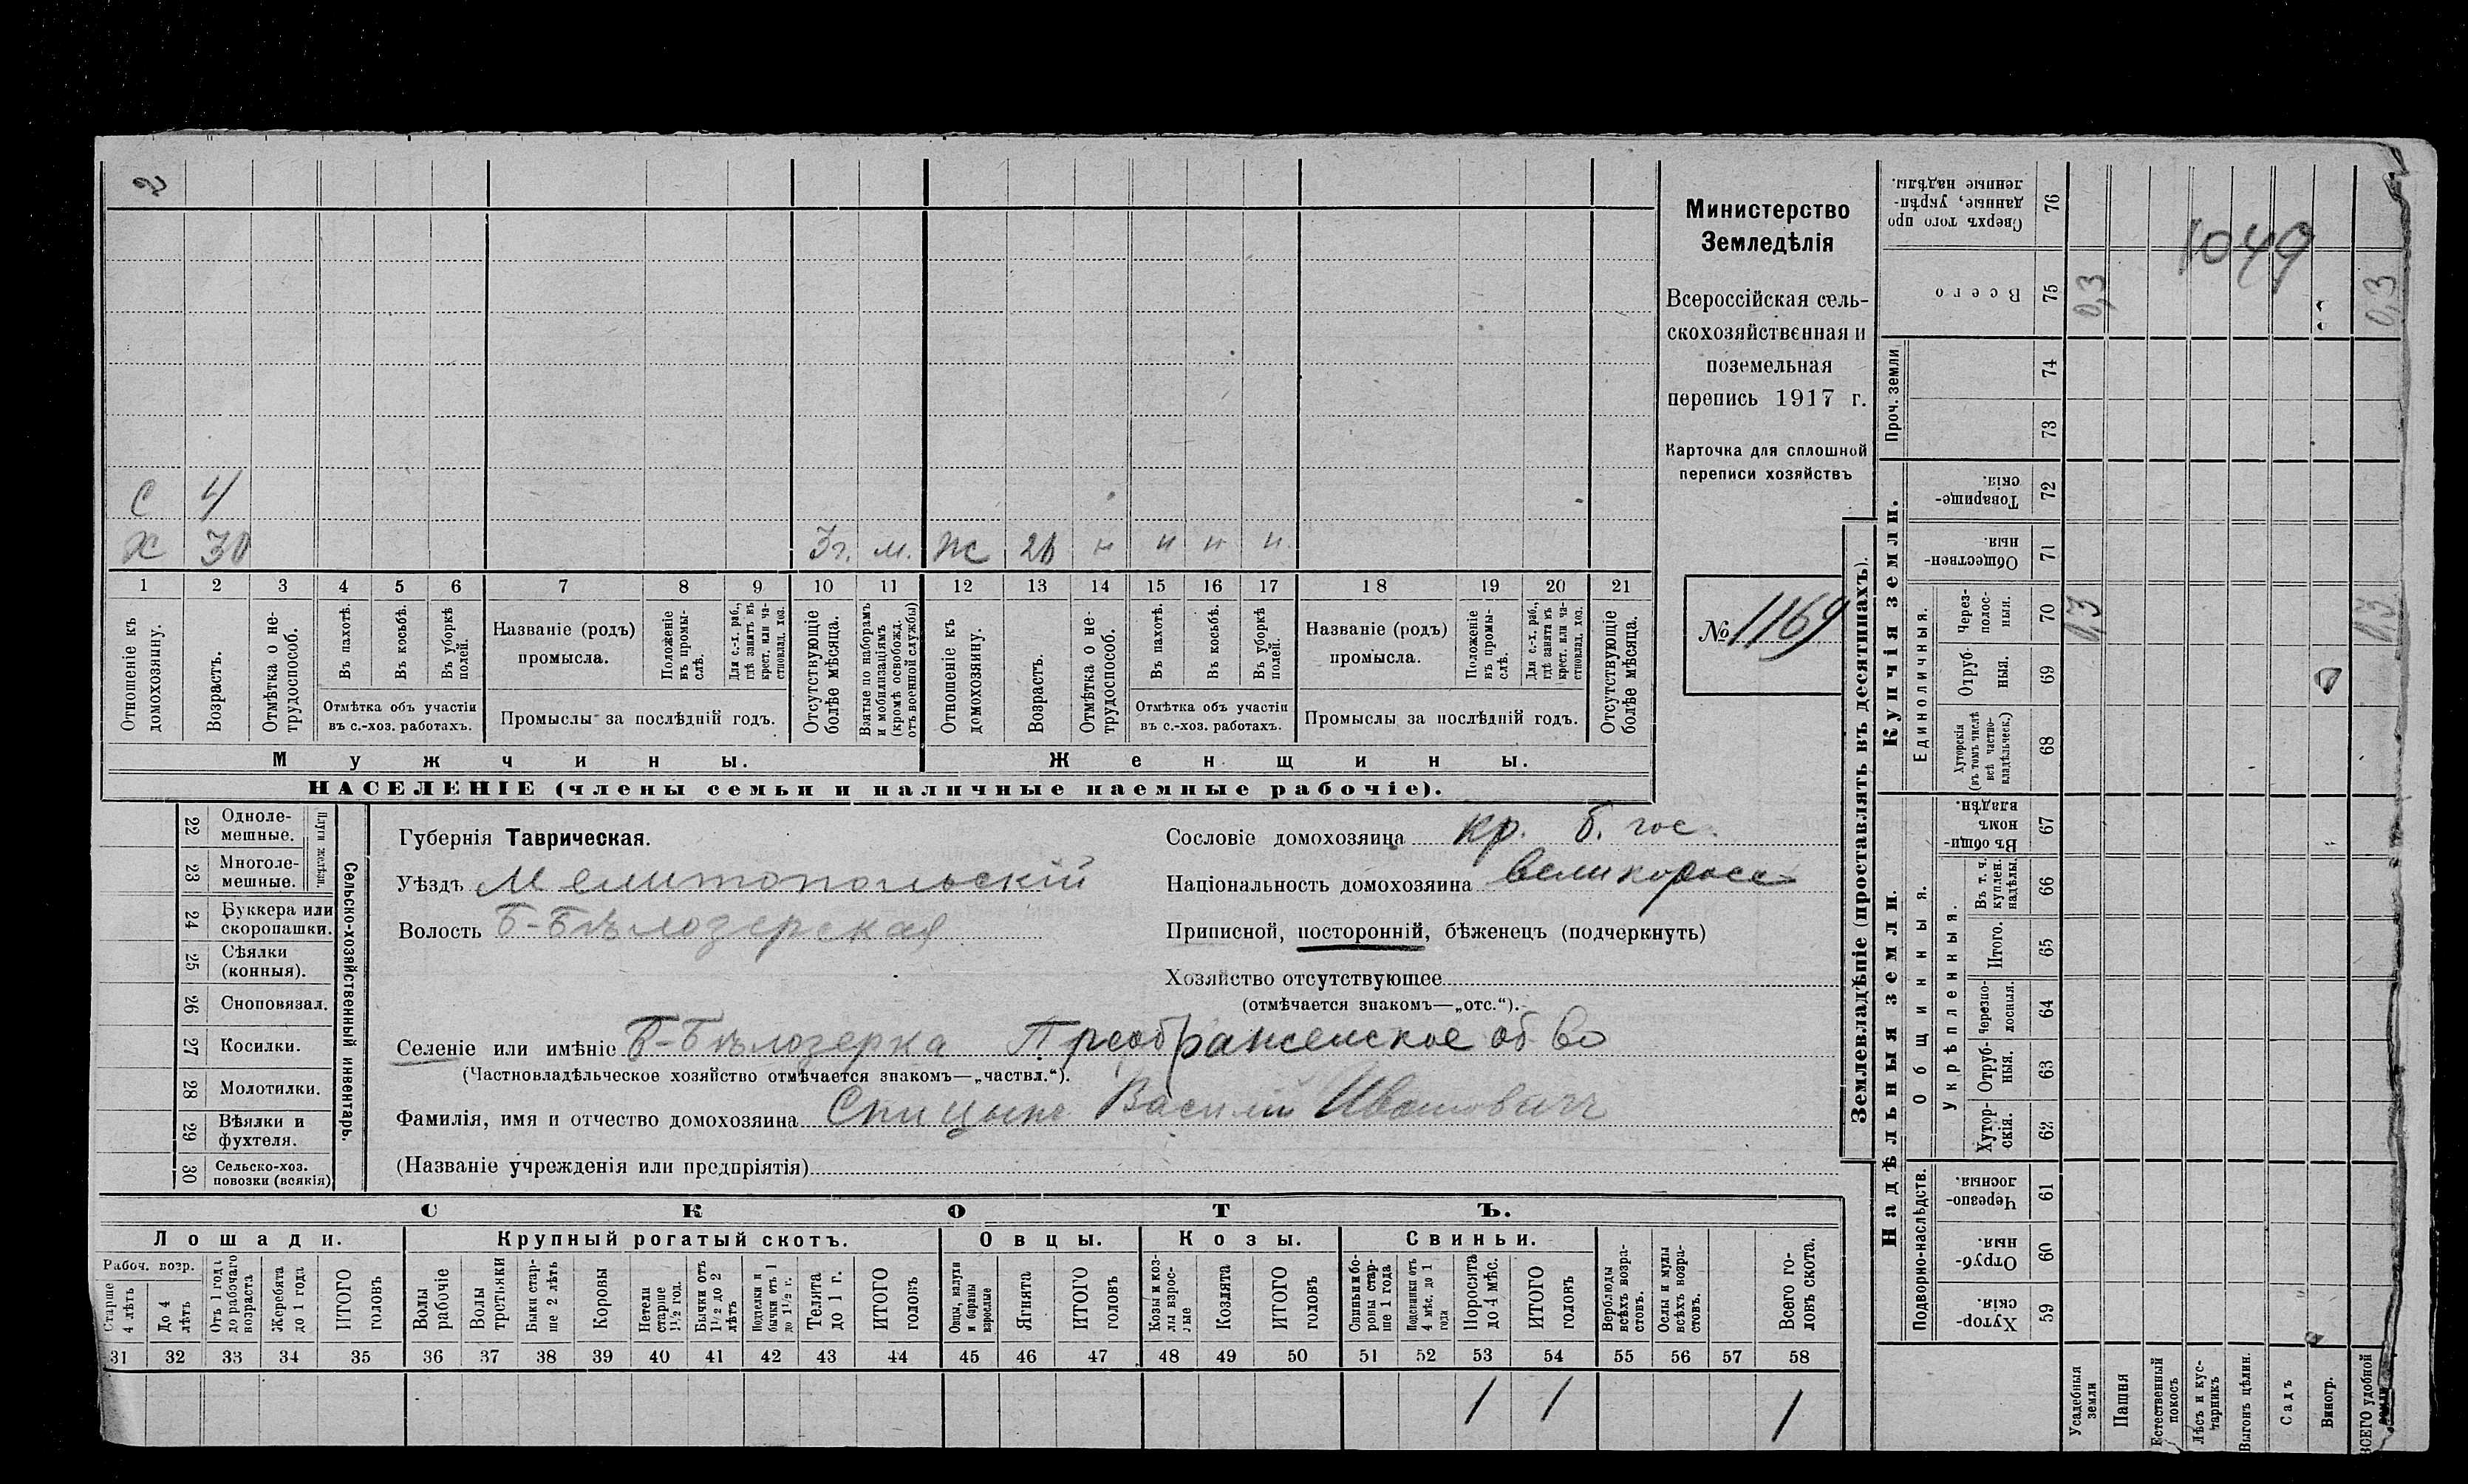 2
С 4
Х 30 3 г. м. Ж 26 н н н н
1 2 3 4 5 6 7 8 9 10 11 12 13 14 15 16 17 18 19 20 21
Отношеніе къ домохозяину.
Возрастъ.
Отмѣтка о не-трудоспособ.
Въ пахотѣ.
Въ косьбѣ.
Въ уборкѣ полей.
Отмѣтка объ участіи
въ с.-хоз. работахъ.
Названіе (родъ)
промысла.
Положеніе въ промы-слѣ.
Для с.-х. раб., гдѣ занятъ въ крест. или ча-стновлад. хоз.
Промыслы за послѣдній годъ.
Отсутствующіе болѣе мѣсяца.
Взятые по наборамъ и мобилизаціямъ (кромѣ освобожд. отъ военной службы)
Отношеніе къ домохозяину.
Возрастъ.
Отмѣтка о не-трудоспособ.
Въ пахотѣ.
Въ косьбѣ.
Въ уборкѣ полей.
Отмѣтка объ участіи
въ с.-хоз. работахъ.
Названіе (родъ)
промысла.
Положеніе въ промы-слѣ.
Для с.-х. раб., гдѣ занята въ крест. или ча-стновлад. хоз.
Промыслы за послѣдній годъ.
Отсутствующіе болѣе мѣсяца.
Мужчины. Женщины.
НАСЕЛЕНІЕ (члены семьи и наличные наемные рабочіе).
Министерство
Земледѣлія
Всероссійская сель-
скохозяйственная и
поземельная
перепись 1917 г.
Карточка для сплошной
переписи хозяйствъ
№ 1169
22 Одноле-мешные.
23 Многоле-мешные.
Плуги желѣзн.
24 Буккера или скоропашки.
25 Сѣялки (конныя).
26 Сноповязал.
27 Косилки.
28 Молотилки.
29 Вѣялки и фухтеля.
30 Сельско-хоз. повозки (всякія)
Сельско-хозяйственный инвентарь.
Губернія Таврическая.
Уѣздъ Мелитопольскій
Волость Б-Бѣлозерская
Сословіе домохозяина кр. б. гос.
Національность домохозяина великоросс
Приписной, посторонній, бѣженецъ (подчеркнуть)
Хозяйство отсутствующее
(отмѣчается знакомъ—„отс.“).
Селеніе или имѣніе Б-Бѣлозерка Преображенское об-во
(Частновладѣльческое хозяйство отмѣчается знакомъ—„частвл.“).
Фамилія, имя и отчество домохозяина Спицынъ Василій Ивановичъ
(Названіе учрежденія или предпріятія)
СКОТЪ.
Лошади. Крупный рогатый скотъ. Овцы. Козы. Свиньи.
Рабоч. возр.
Старше 4 лѣтъ
До 4 лѣтъ
Отъ 1 года до рабочаго возраста
Жеребята до 1 года
ИТОГО головъ
Волы рабочіе
Волы третьяки
Быки стар-ше 2 лѣтъ
Коровы
Нетели старше 1½ год.
Бычки отъ 1½ до 2 лѣтъ
Подтелки и бычки отъ 1 до 1½ г.
Телята до 1 г.
ИТОГО головъ
Овцы, валухи и бараны взрослые
Ягнята
ИТОГО головъ
Козы и коз-лы взрос-лые
Козлята
ИТОГО головъ
Свиньи и бо-ровы стар-ше 1 года
Подсвинки отъ 4 мѣс. до 1 года
Поросята до 4 мѣс.
ИТОГО головъ
Верблюды всѣхъ возра-стовъ.
Ослы и мулы всѣхъ возра-стовъ.
Всего го-ловъ скота.
31 32 33 34 35 36 37 38 39 40 41 42 43 44 45 46 47 48 49 50 51 52 53 54 55 56 57 58
1 1 1
Землевладѣніе (проставлять въ десятинахъ).
Надѣльныя земли.
Купчія земли.
Проч. земли
Подворно-наслѣдств.
Общинныя.
Укрѣпленныя.
Единоличныя.
Сверхъ того про данные, укрѣп-ленные надѣлы. 76
Всего 75 0,3 0,3
1049
74
73
Товарище-скія. 72
Обществен-ныя. 71
Через-полос-ныя. 70 0,3 0,3
Отруб-ныя. 69
Хуторскія (въ томъ числѣ всѣ частно-владѣльческ.) 68
Въ общин-номъ владѣн. 67
Въ т. ч. куплен. надѣлы. 66
Итого. 65
Черезпо-лосныя. 64
Отруб-ныя. 63
Хутор-скія. 62
Черезпо-лосныя. 61
Отруб-ныя. 60
Хутор-скія. 59
Усадебныя земли
Пашня
Естественный покосъ
Лѣсъ и кус-тарникъ
Выгонъ цѣлин.
Садъ
Виногр.
ВСЕГО удобной земли